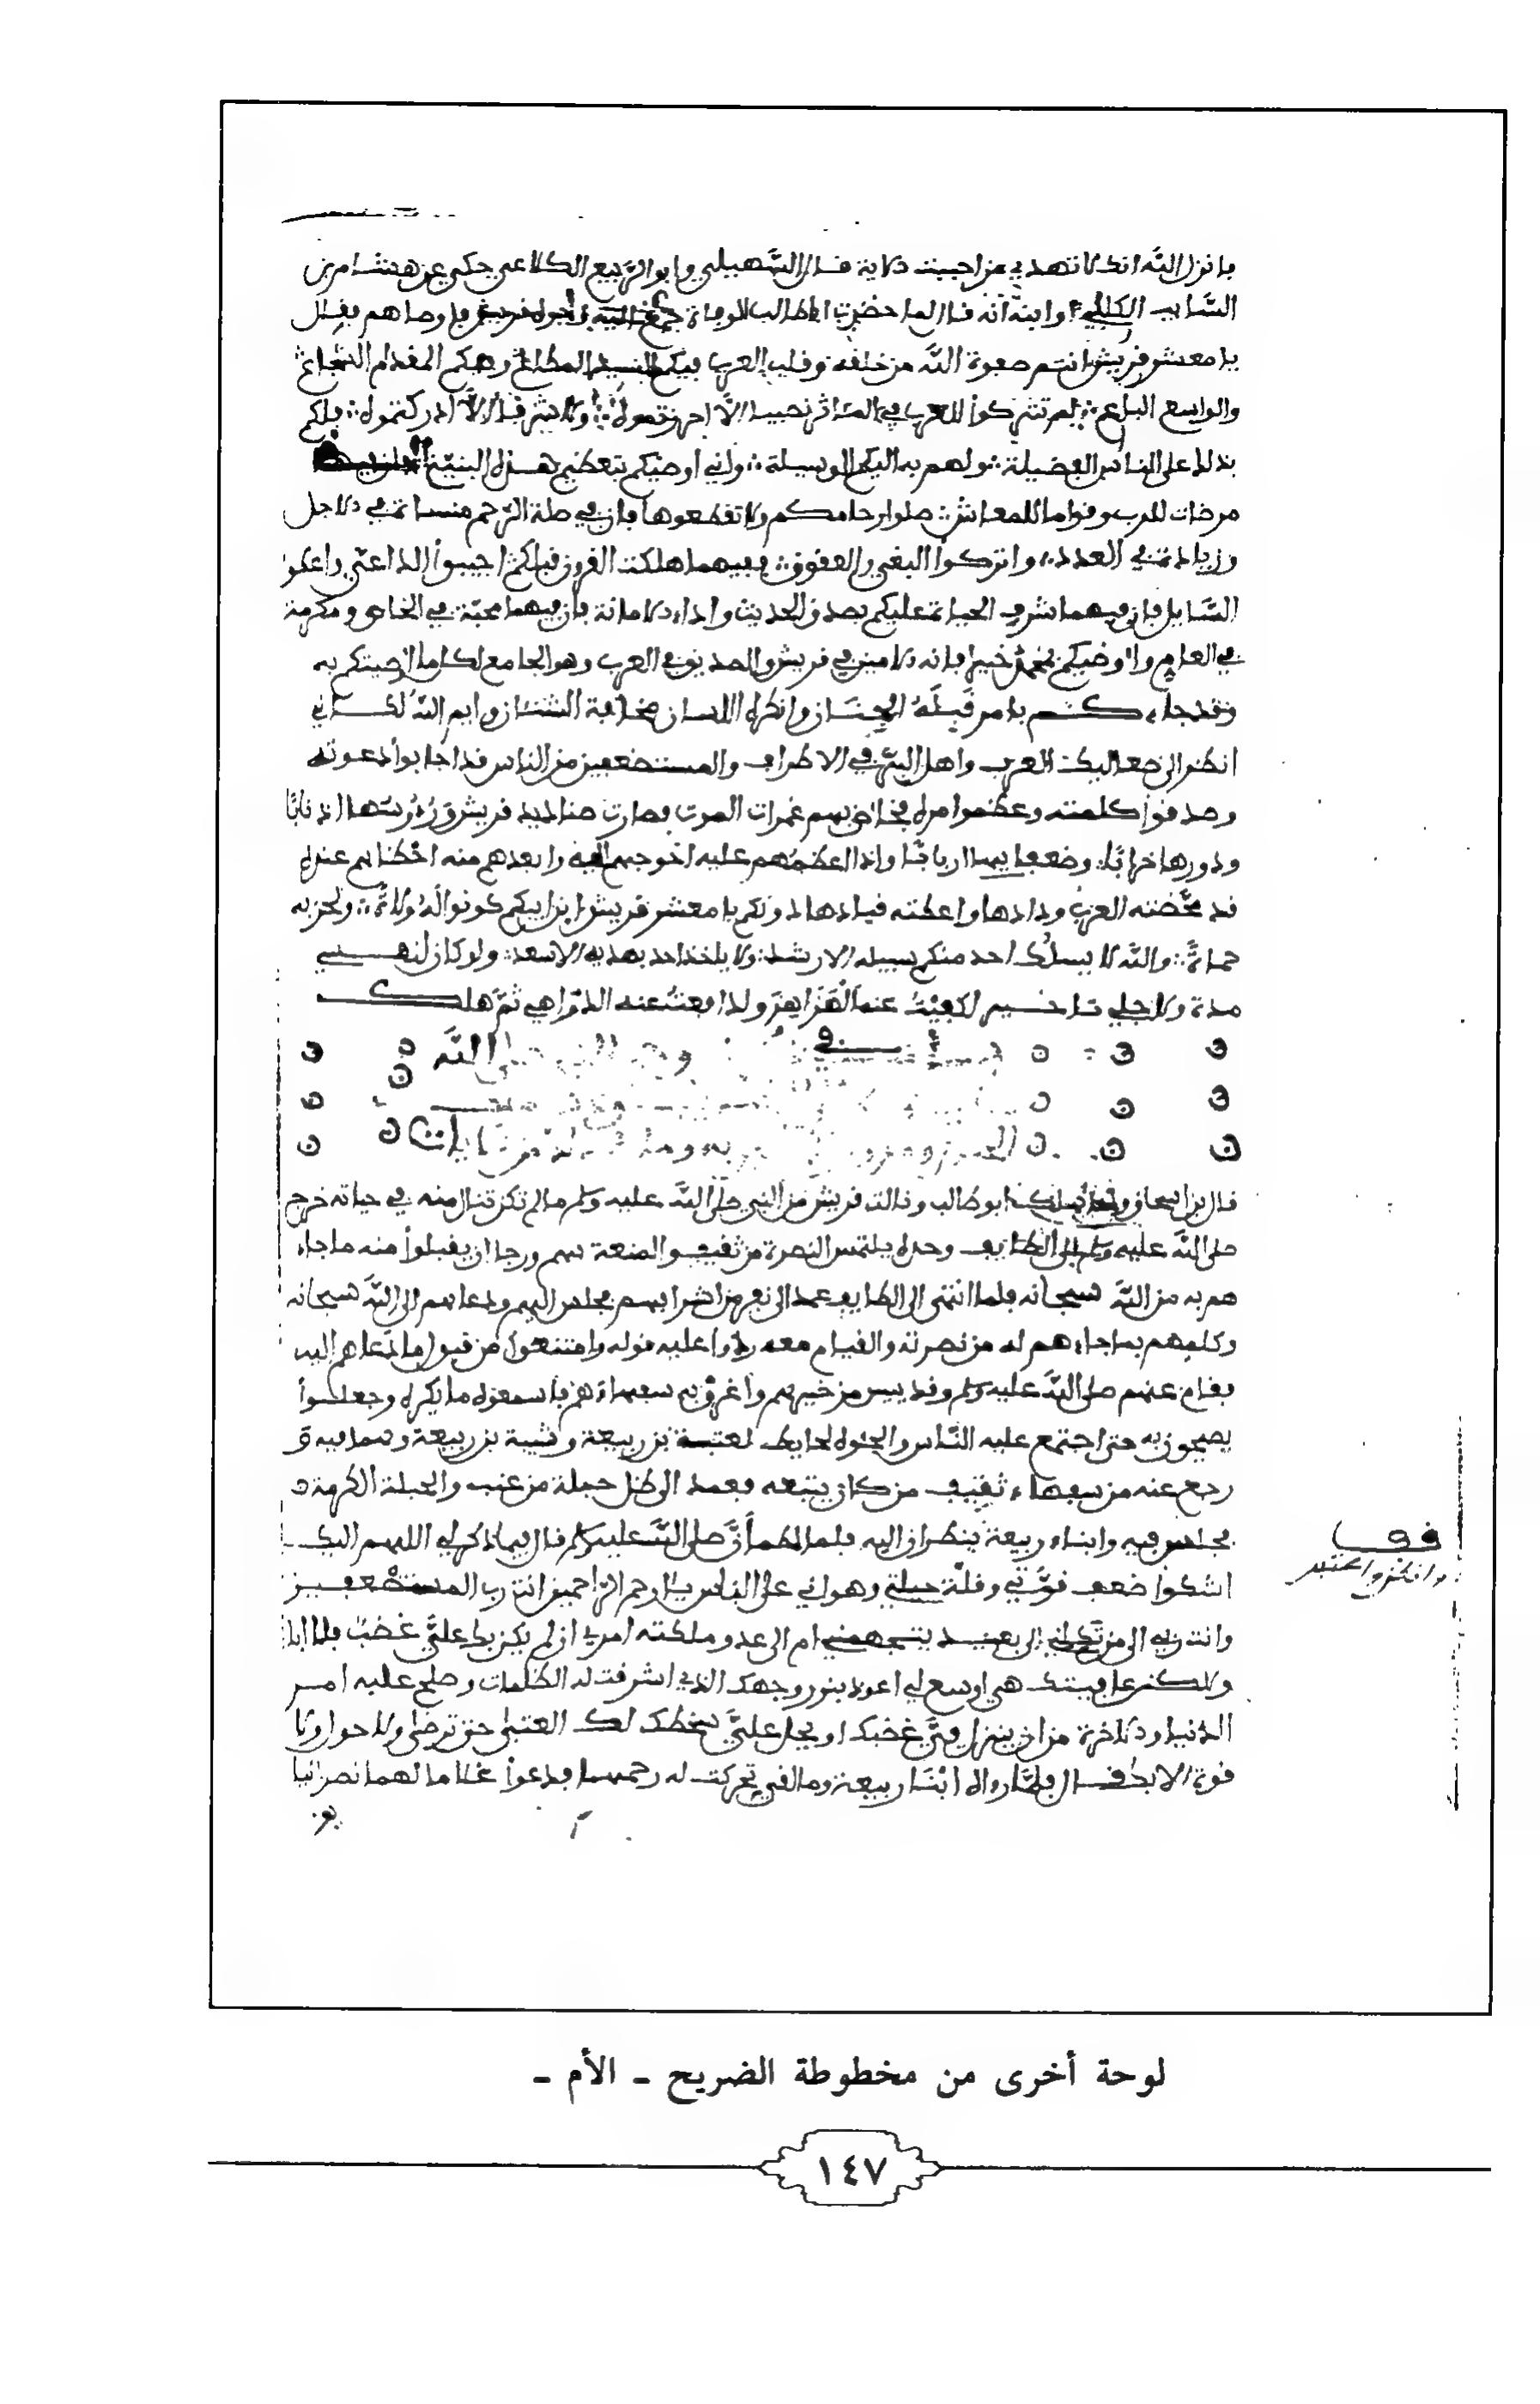 فانزل الله انك لا تهدي من احببت الاية قال السهيلي وابو الربيع الكلاعي حكي عن هشام بن
السايب الكلبي او ابنه انه قال لما حضرت ابا طالب الوفاة جمع اليه وجوه قريش فاوصاهم فقال
يا معشر قريش انتم صفوة الله من خلقه وقلب العرب فيكم السيد المطاع وفيكم المقدام الشجاع
والواسع الباع لم تتركوا للعرب في المئاثر نصيبا الا احرزتموه ولا شرفا الا ادركتموه فلكم
بذلك على الناس الفضيلة ولهم به اليكم الوسيلة واني اوصيكم بتعظيم هذه البنية فان فيها
مرضات للرب وقواما للمعاش صلوا ارحامكم ولا تقطعوها فان في صلة الرحم منساة في الاجل
وزيادة في العدد واتركوا البغي والعقوق ففيهما هلكت القرون قبلكم اجيبوا الداعي واعطوا
السايل فان فيهما شرف الحياة عليكم بصدق الحديث واداء الامانة فان فيهما محبة في الخاص ومكرمة
في العام واوصيكم بمحمد خيرا فانه الامين في قريش والصديق في العرب وهو الجامع لكل ما اوصيتكم به
وقد جاءكم بامر قبله الجنان وانكره اللسان مخافة الشنئان وايم الله لكاني
انظر الى صعاليك العرب واهل البر في الاطراف والمستضعفين من الناس قد اجابوا دعوته
وصدقوا كلمته وعظموا امره فخاض بهم غمرات الموت فصارت صناديد قريش ورؤسها اذنابا
ودورها خرابا وضعفاؤها اربابا واذا اعظمهم عليه احوجهم اليه وابعدهم منه احظاهم عنده
قد محضته العرب ودادها واعطته قيادها دونكم يا معشر قريش ابن ابيكم كونوا له ولاة ولحزبه
حماة والله لا يسلك احد منكم سبيله الا رشد ولا ياخذ احد بهديه الا سعد ولو كان لنفسي
مدة ولاجلي تاخير لكفيت عنه الهزاهز ولدافعت عنه الدواهي ثم هلك
الله
قال ابن اسحاق ولما هلك ابو طالب ونالت قريش من النبي صلى الله عليه وسلم ما لم تكن تنال منه في حياته خرج
صلى الله عليه وسلم الى الطايف وحده يلتمس النصرة من ثقيف والمنعة بهم ورجا ان يقبلوا منه ما جاء
هم به من الله سبحانه فلما انتهى الى الطايف عمد الى نفر من اشرافهم فجلس اليهم ودعاهم الى الله سبحانه
وكلمهم بما جاءهم له من نصرته والقيام معه ردوا عليه قوله وامتنعوا من قبول ما دعاهم اليه
فقام عنهم صلى الله عليه وسلم وقد ييس من خيرهم واغروا به سفهاءهم فاسمعوه ما يكره وجعلوا
يصيحون به حتى اجتمع عليه الناس والجئوه لحايط لعتبة بن ربيعة وشيبة بن ربيعة وهما فيه و
رجع عنه من سفهاء ثقيف من كان يتبعه فعمد الى ظل حبلة من عنب والحبلة الكرمة
فجلس فيه وابناء ربيعة ينظران اليه فلما اطمأن صلى الله عليه وسلم قال فيما ذكر لي اللهم اليك
اشكوا ضعف قوتي وقلة حيلتي وهواني على الناس يا ارحم الراحمين انت رب المستضعفين
وانت ربي الى من تكلني الى بعيد يتجهمني ام الى عدو ملكته امري ان لم يكن بك علي غضب فلا ابالي
ولاكن عافيتك هي اوسع لي اعوذ بنور وجهك الذي اشرقت له الظلمات وصلح عليه امر
الدنيا والاخرة من ان ينزل بي غضبك او يحل علي سخطك لك العتبى حتى ترضى ولا حول ولا
قوة الا بك قال فلما رءاه ابنا ربيعة وما لقي تحركت له رحمهما فدعوا غلاما لهما نصرانيا
قف
لوحة أخرى من مخطوطة الضريح - الأم -
١٤٧